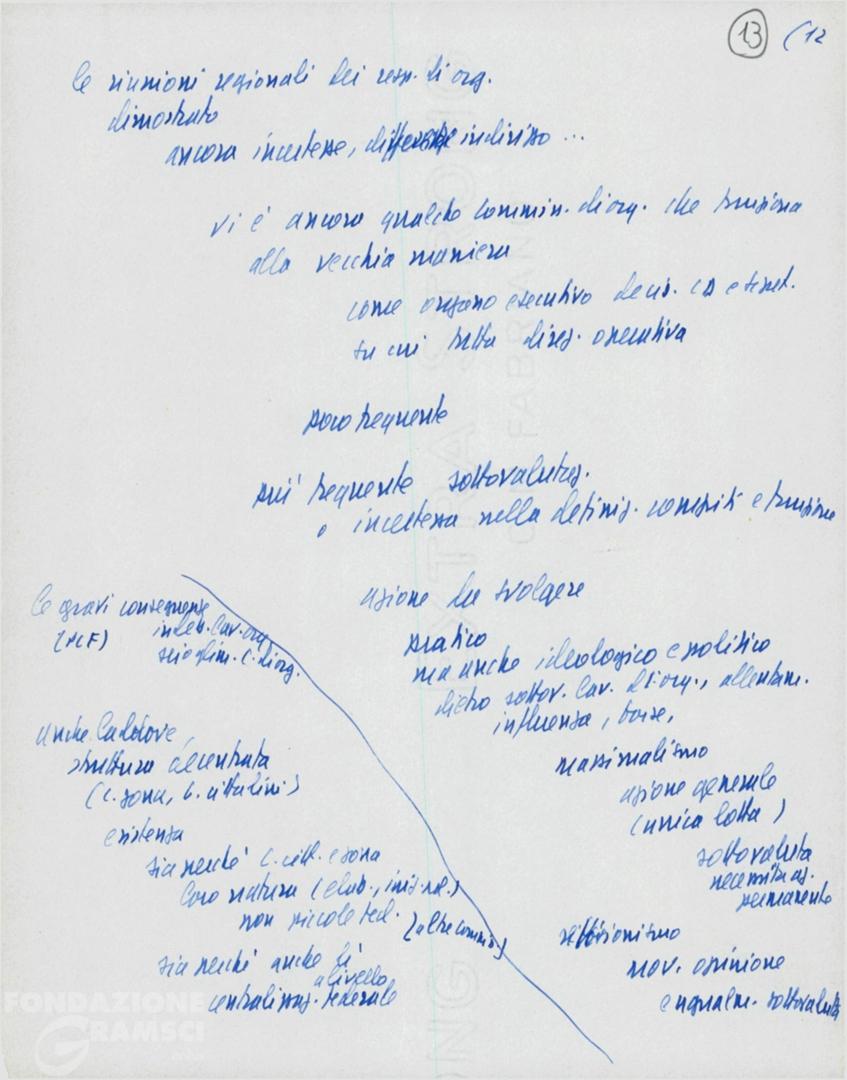 13 (12
le riunioni regionali dei resp. di org.
dimostrato
ancora incertezze, indirizzo ...
vi è ancora qualche commiss. di org. che funziona
alla vecchia maniera
come organo esecutivo decis. CD e segret.
su cui tutta direz. operativa
poco frequente
più frequente sottovalutaz.
o incertezza nella definiz. compiti e funzione
azione da svolgere
pratico
ma anche ideologico e politico
dietro sottov. lav. di org., allentam.
influenza, forse,
massimalismo
azione generale
(unica lotta)
sottovaluta
necessità az.
permanente
mov. opinione
egualm. sottovaluta
le gravi conseguenze
(PCF) indeb. lav. org.
scioglim. C. di org.
anche laddove,
struttura decentrata
(C. zona, C. cittadini)
esistenza
sia perché C. citt. e zona
loro natura (elab., iniz. pol.)
non piccole fed. (altre commiss.)
sia perché anche lì
a livello
centralizzaz. federale
FONDAZIONE
GRAMSCI